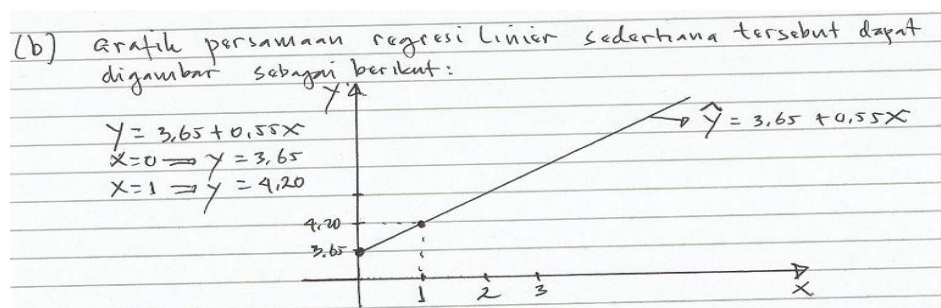 (b) Grafik persamaan regresi linier sederhana tersebut dapat
digambar sebagai berikut:
Y
Y = 3,65 + 0,55X
X=0 ⇒ Y = 3,65
X=1 ⇒ Y = 4,20
Ŷ = 3,65 + 0,55X
4,20
3,65
1 2 3
X